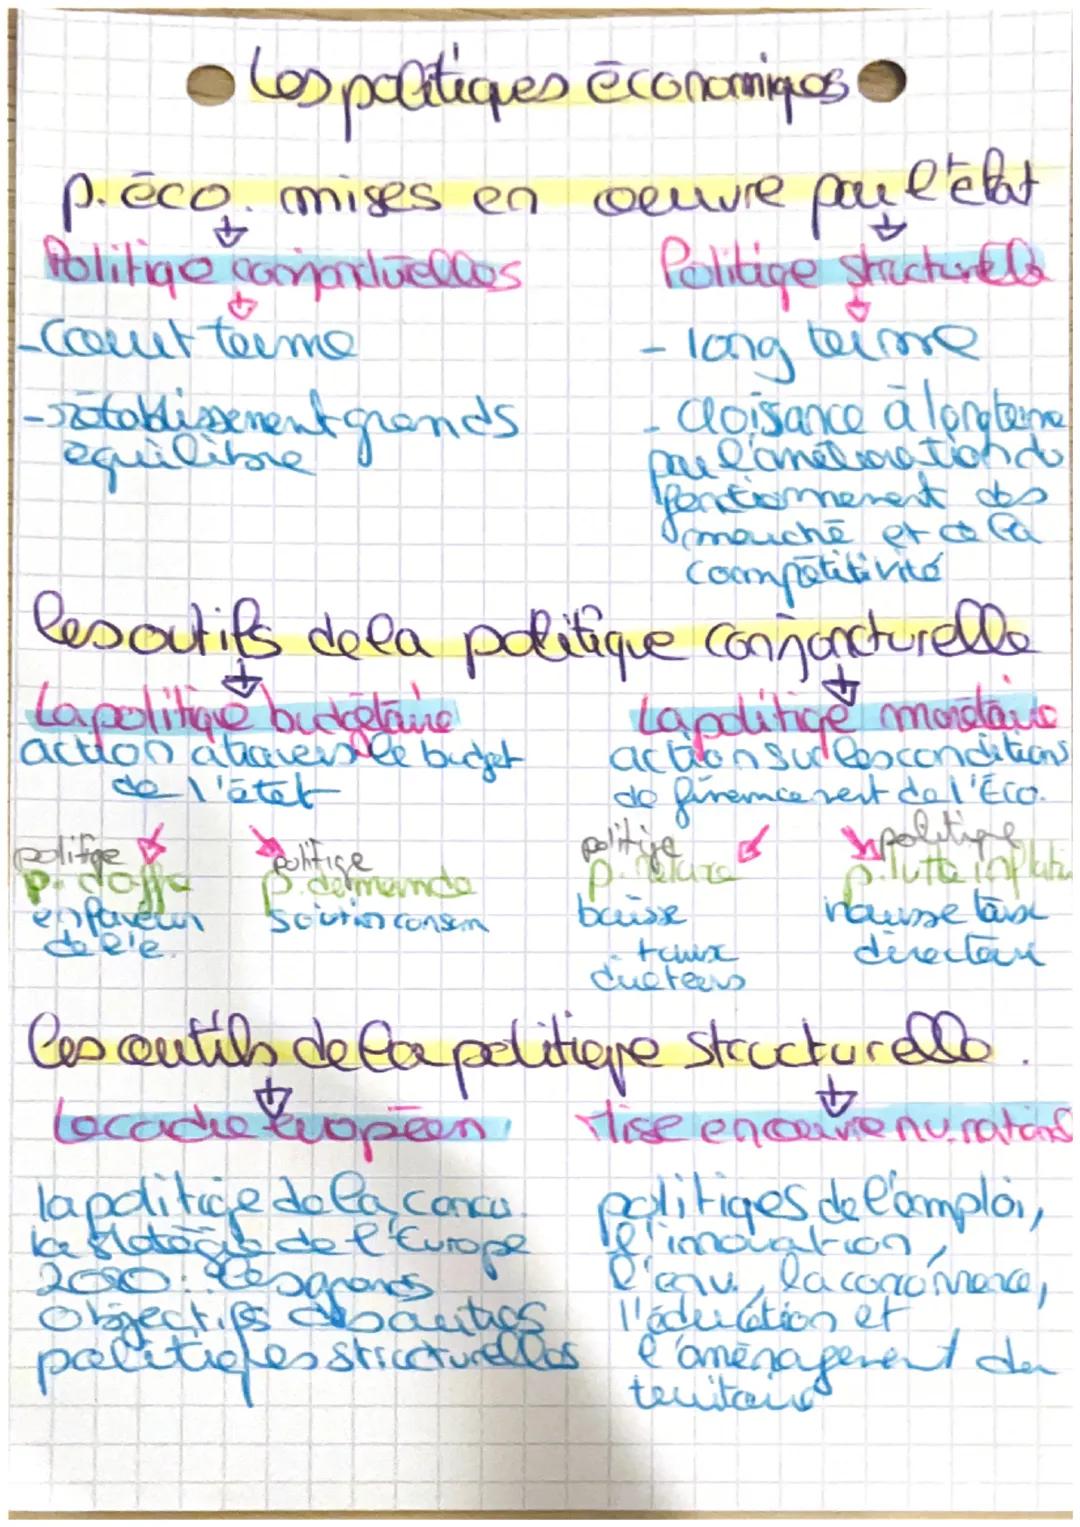 Les politiques économiques
p. éco. mises en oeuvre par l'état
Politiqe conjoncturelles
Politiqe structurelle
- Court terme
- rétablissement grands
équilibre
- long terme
- croisance à long terme
par l'amélioration du
fonctionnement des
marché et de la
compétitivité
les outils de la politique conjoncturelle
La politique budgétaire
action à travers le budget
de l'état
La politiqe monétaire
action sur les conditions
de financement de l'Éco.
politiqe
p. d'offre
en faveur
de l'e.
politiqe
p. demande
soutien consom
politiqe
p. relance
baisse
taux
directeurs
politique
p. lutte inflation
hausse taux
directeur
les outils de la politique structurelle.
Le cadre européen
Mise en oeuvre nationa
la politiqe de la concu.
la stratégie de l'Europe
2020: les grands
objectifs des autres
politiques structurelles
politiqes de l'emploi,
l'innovation,
l'env., la concurrence,
l'éducation et
l'aménagement du
territoire